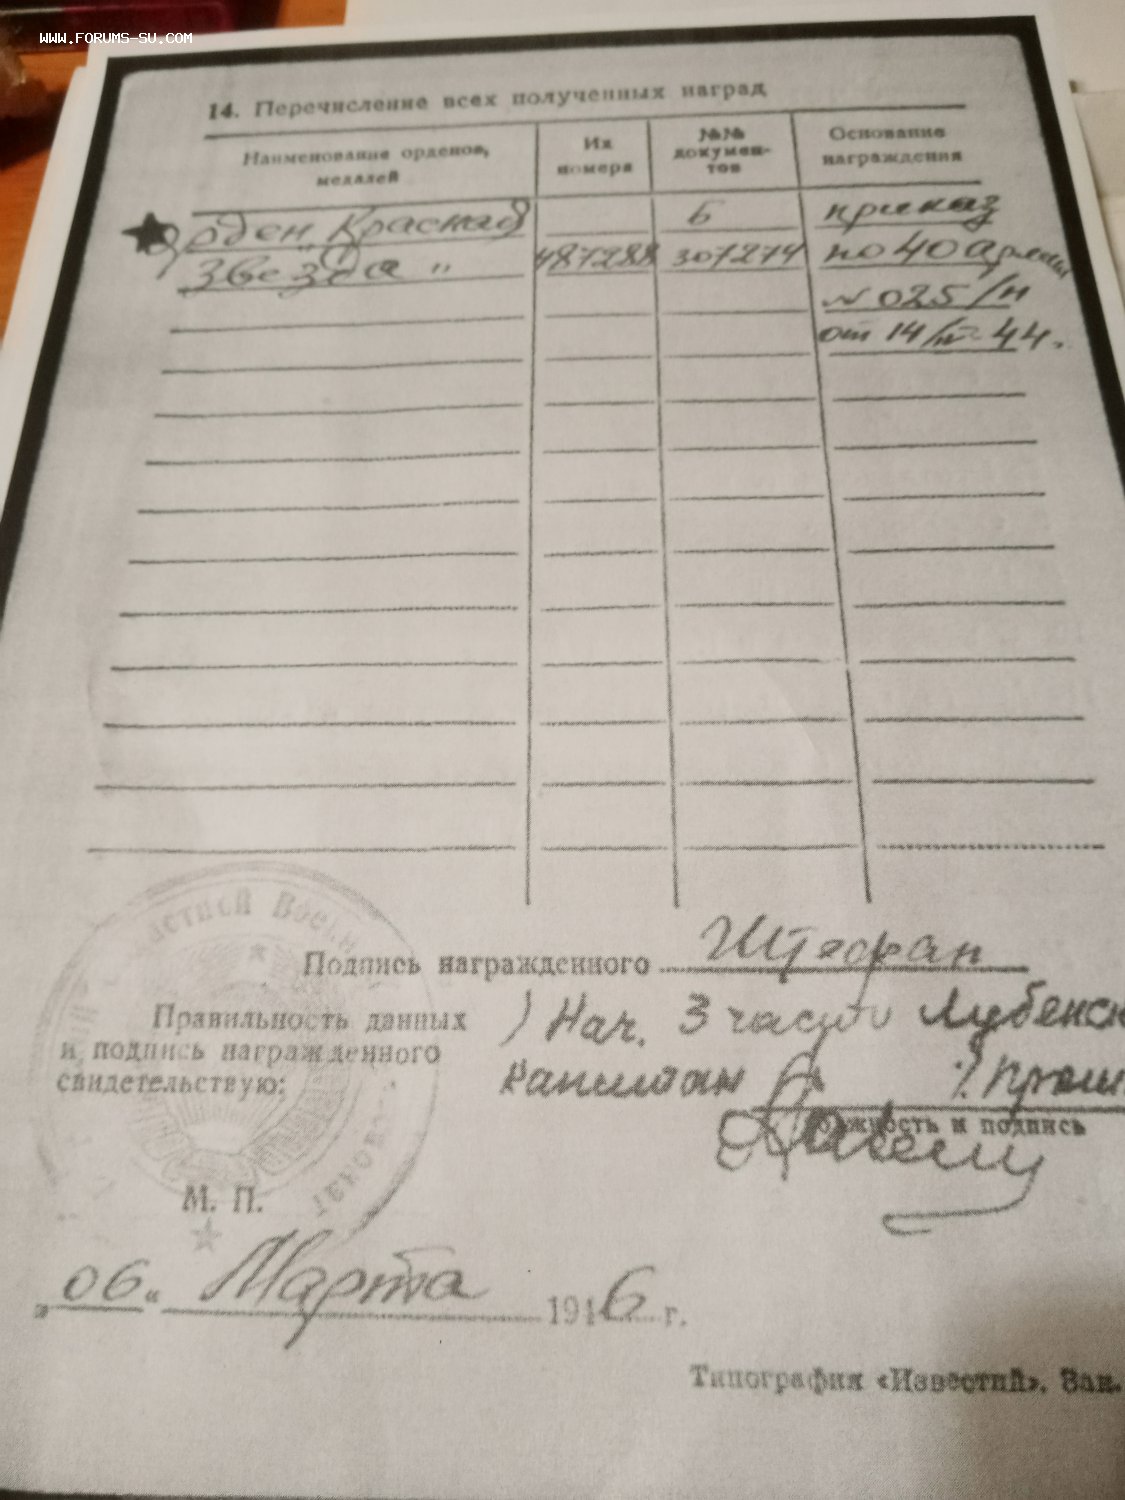 WWW.FORUMS-SU.COM
14. Перечисление всех полученных наград
Наименование орденов, медалей
Их номера
№№ документов
Основание награждения
Орден „Красная Б приказ
Звезда" 487288 307274 по 40 армии
№ 025/н
от 14/IV-44.
Подпись награжденного Штефан
Правильность данных
и подпись награжденного
свидетельствую:
) Нач. 3 части Лубенск
Капитан
Должность и подпись
М. П.
„06" Марта 1946 г.
Типография «Известий». Зак.